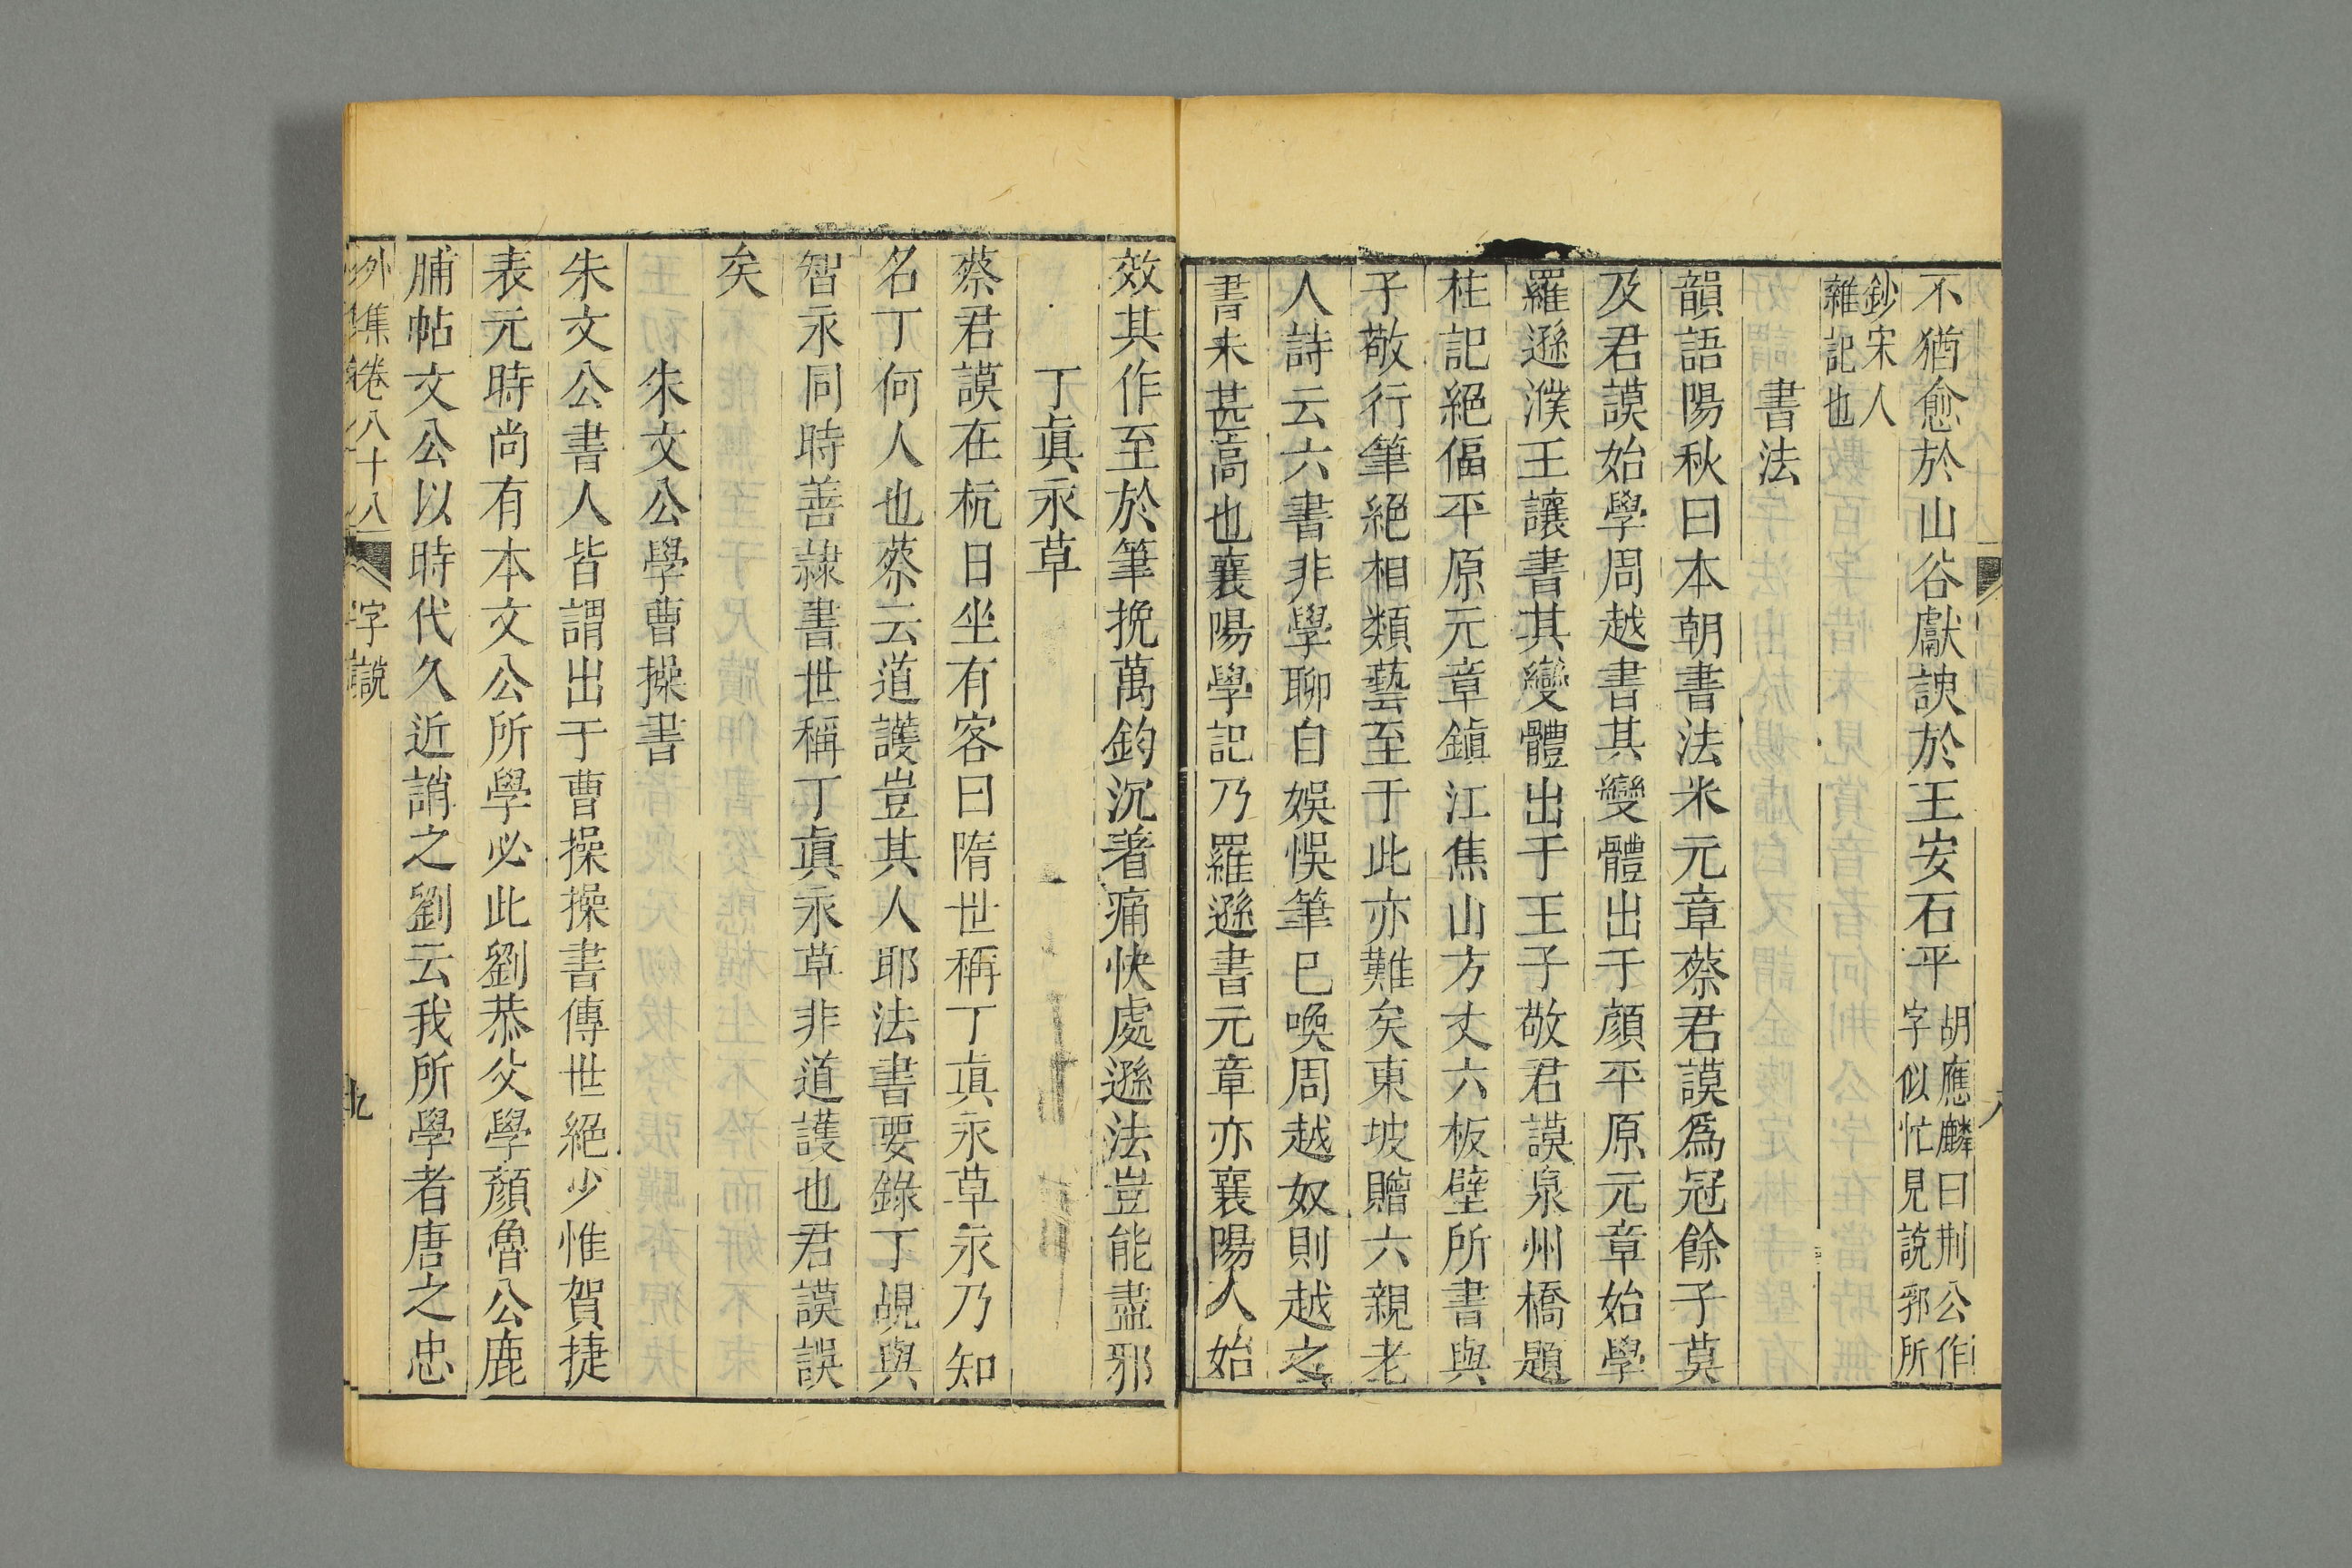 不猶愈於山谷獻諛於王安石乎胡應麟曰荆公作字似忙見說郛所
鈔宋人雜記也
書法
韻語陽秋曰本朝書法米元章蔡君謨爲冠餘子莫
及君謨始學周越書其變體出于顏平原元章始學
羅遜濮王讓書其變體出于王子敬君謨泉州橋題
柱記絕偪平原元章鎮江焦山方丈六板壁所書與
子敬行筆絕相類藝至于此亦難矣東坡贈六親老
人詩云六書非學聊自娛悞筆巳喚周越奴則越之
書未甚高也襄陽學記乃羅遜書元章亦襄陽人始
效其作至於筆挽萬鈞沉著痛快處遜法豈能盡邪
丁眞永草
蔡君謨在杭日坐有客曰隋世稱丁眞永草永乃知
名丁何人也蔡云道護豈其人耶法書要錄丁覘與
智永同時善隷書世稱丁眞永草非道護也君謨誤
矣
朱文公學曹操書
朱文公書人皆謂出于曹操操書傳世絕少惟賀捷
表元時尚有本文公所學必此劉恭父學顏魯公鹿
脯帖文公以時代久近誚之劉云我所學者唐之忠
外集卷八十八 字說
九